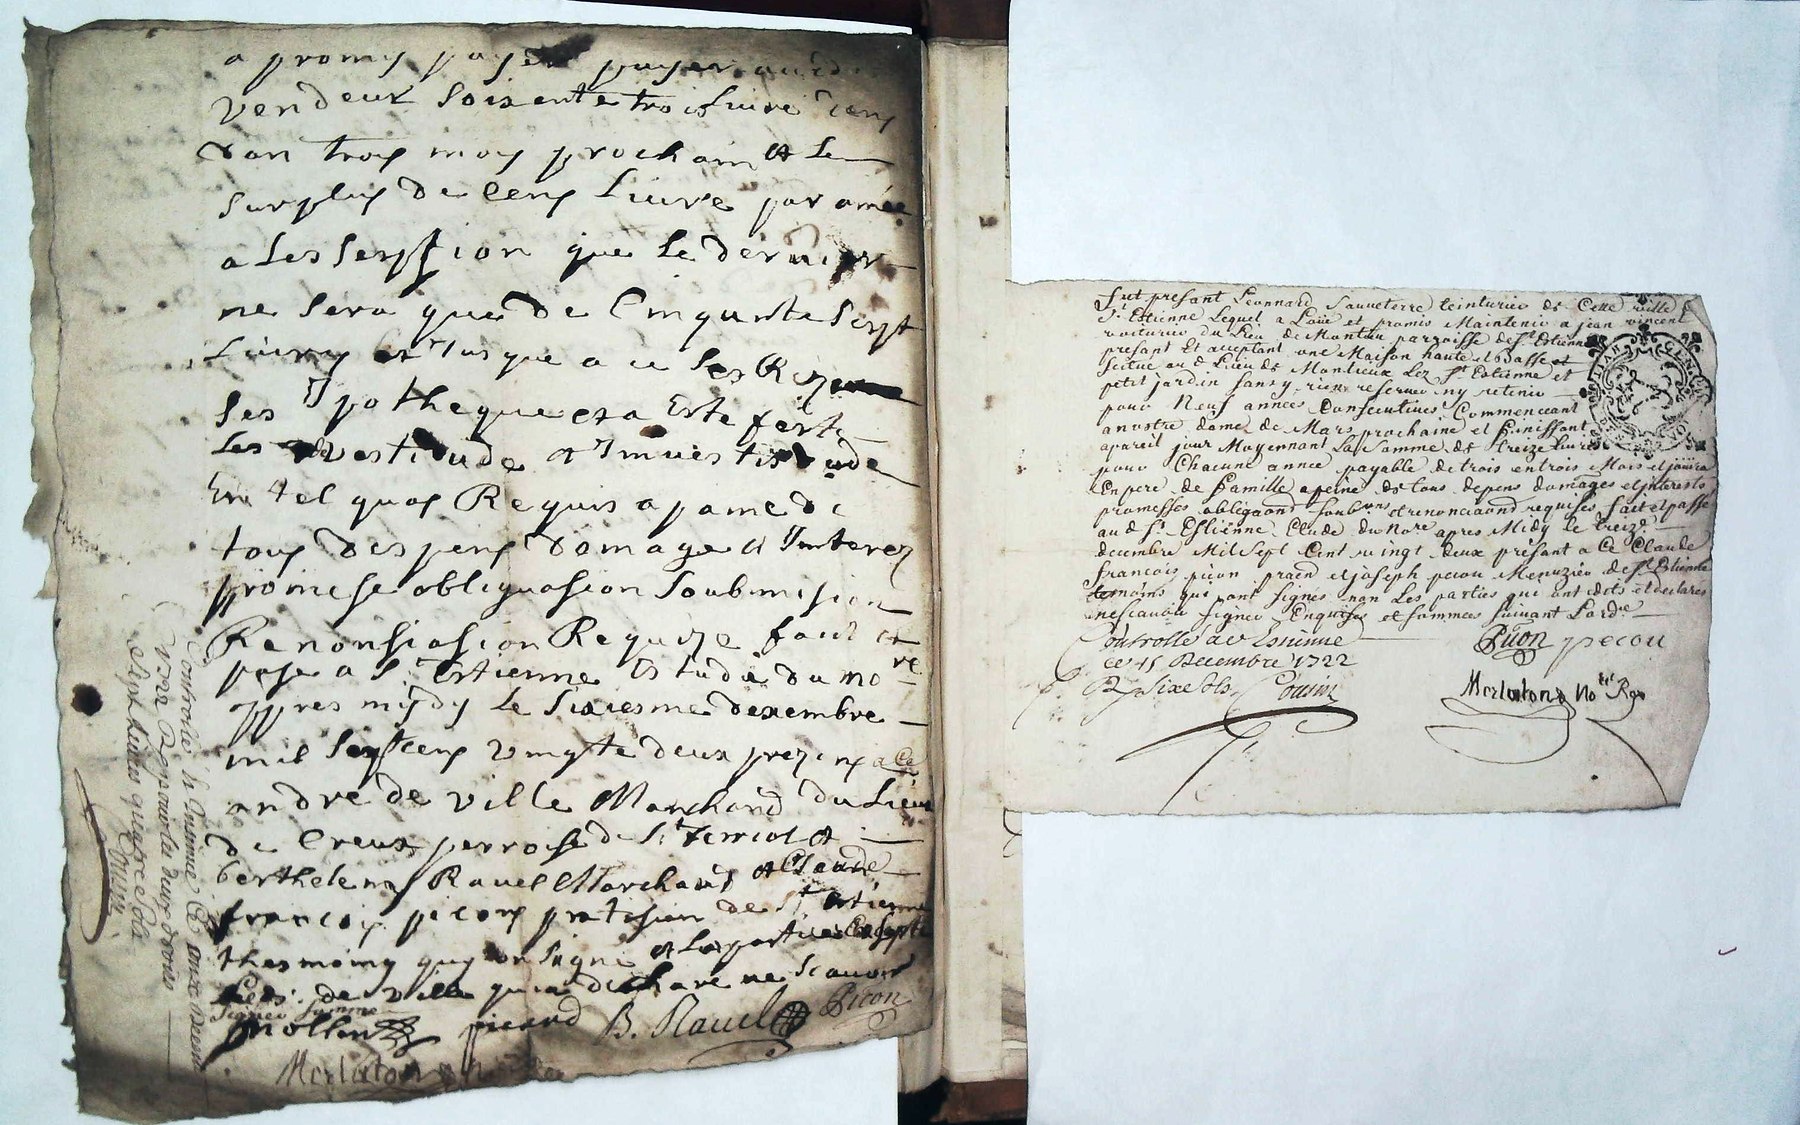 a promis payer payer
vendeux soixente trois livre dens
dan troys moy prochain et le
surplus de cens livre par anée
a lesserption que le dernier
ne sera que de Cinqunte sept
livry et Jusque a ce ses Re
ses Ipotheque
les vestitude et Inmuestitude
En tel quas Requis a pame de
tous despens domage et Jnterez
promese obliguasion soubmision
Renonsiasion Requize fait et
pase a St Estienne Estude du nore
appres midy le sixiesme dexembre
mil septcens vingte deux prezens a Ce
andre de ville Marchand du Lieu
de Creux perroise de St et
berthelemy Rauel Marchant et Claude
francois picon pratisien de St Estienne
thesmoing quy on signe et les parties Exsepte
de ville qui a desclare ne scauoir
signer
picard B. Rauel Picon
Merlaton
Controllé a St Etienne Ce onze decembre
1722 Reçu
sept livres quatre sols
Cousin
fut présant Leonnard Sauveterre teinturier de Cette ville
St Estienne Lequel a Loüe et promis Maintenir a jean vincent
voiturier du Lieu de Montau parroisse de St Estienne
présant Et acceptant une Maison haute et basse et
scitue au d Lieu de Montieux Lez St Estienne et
petit jardin sans y rien reserver ny retenir
pour Neuf années Consecutives Commenceant
a nostre dame de Mars prochaine et finissant
a pareil jour Moyennant La Somme de treize livres
pour Chacune année payable de trois en trois Mois et jouira
En pere de famille a peine de tous depens domages et jnterests
promesses obligaond soubons et renonciaond requises fait et passé
au d St Estienne Etude du Nore apres Midy le treize
decembre Mil Sept Cent vingt deux présant a Ce Claude
francois picon pratn et joseph pecou Menuzier de St Estienne
temoins qui ont signés non Les parties qui ont dits et declarés
ne scavoir signer Enquises et sommées suivant Lordre
Controllé a St Etienne
ce 15 Decembre 1722
R sixe sols Cousin
Picon pecou
Merlaton Nore